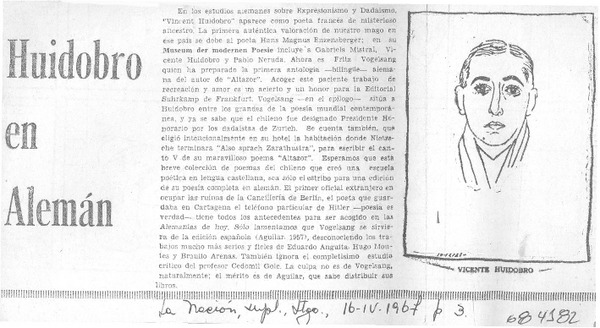 Huidobro
en
Alemán
En los estudios alemanes sobre Expresionismo y Dadaísmo,
"Vincent Huidobro" aparece como poeta francés de misterioso
ancestro. La primera auténtica valoración de nuestro mago en
ese país se debe al poeta Hans Magnus Enzensberger; en su
Museum der modernen Poesie incluye a Gabriela Mistral, Vi-
cente Huidobro y Pablo Neruda. Ahora es Fritz Vogelsang
quien ha preparado la primera antología —bilingüe— alema-
na del autor de "Altazor". Acoger este paciente trabajo de
recreación y amor es un acierto y un honor para la Editorial
Suhrkamp de Frankfurt. Vogelsang —en el epílogo— sitúa a
Huidobro entre los grandes de la poesía mundial contemporá-
nea, y ya se sabe que el chileno fue designado Presidente Ho-
norario por los dadaístas de Zurich. Se cuenta también, que
eligió intencionalmente en su hotel la habitación donde Nietzs-
che terminara "Also sprach Zarathustra", para escribir el can-
to V de su maravilloso poema "Altazor". Esperamos que esta
breve colección de poemas del chileno que creó una escuela
poética en lengua castellana, sea sólo el estribo para una edición
de su poesía completa en alemán. El primer oficial extranjero en
ocupar las ruinas de la Cancillería de Berlín, el poeta que guar-
daba en Cartagena el teléfono particular de Hitler —poesía es
verdad— tiene todos los antecedentes para ser acogido en las
Alemanias de hoy. Sólo lamentamos que Vogelsang se sirvie-
ra de la edición española (Aguilar, 1957), desconociendo los tra-
bajos mucho más serios y fieles de Eduardo Anguita, Hugo Mon-
tes y Braulio Arenas. También ignora el completísimo estudio
crítico del profesor Cedomil Goic. La culpa no es de Vogelsang,
naturalmente; el mérito es de Aguilar, que sabe distribuir sus
libros.
VICENTE HUIDOBRO
La Nación, supl., Stgo., 16-IV-1967 p 3.
684982